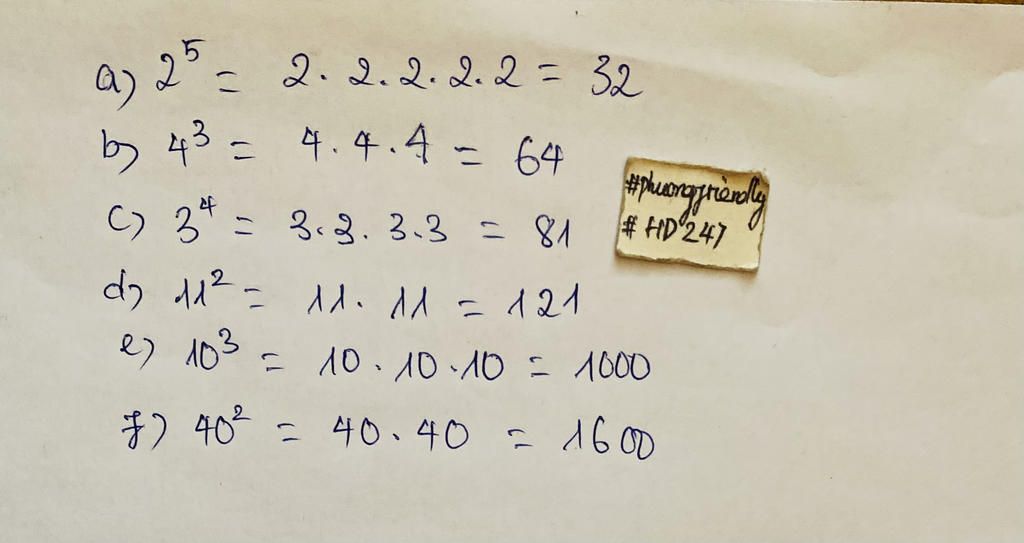 a) 2⁵ = 2. 2. 2. 2. 2 = 32
b) 4³ = 4. 4. 4 = 64
c) 3⁴ = 3. 3. 3. 3 = 81
d) 11² = 11. 11 = 121
e) 10³ = 10. 10. 10 = 1000
f) 40² = 40. 40 = 1600
#phuongfriendly
# HD247